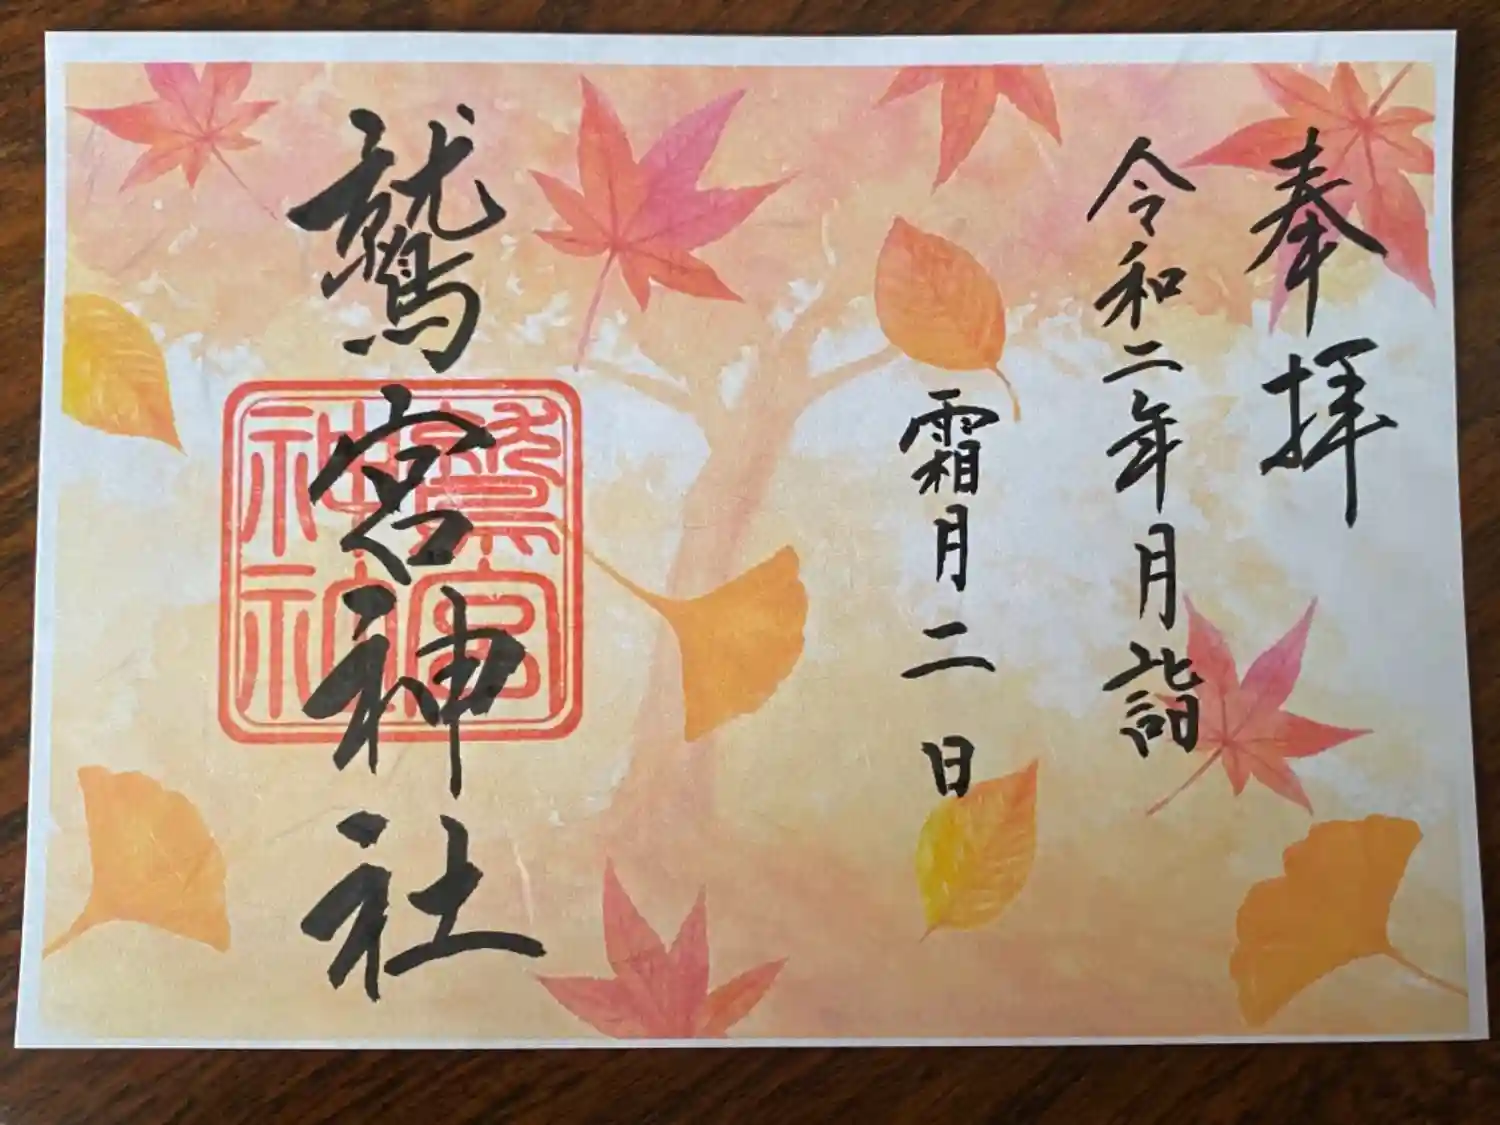 奉拝
令和二年月詣
霜月二日
鷲宮神社
鷲宮
神社